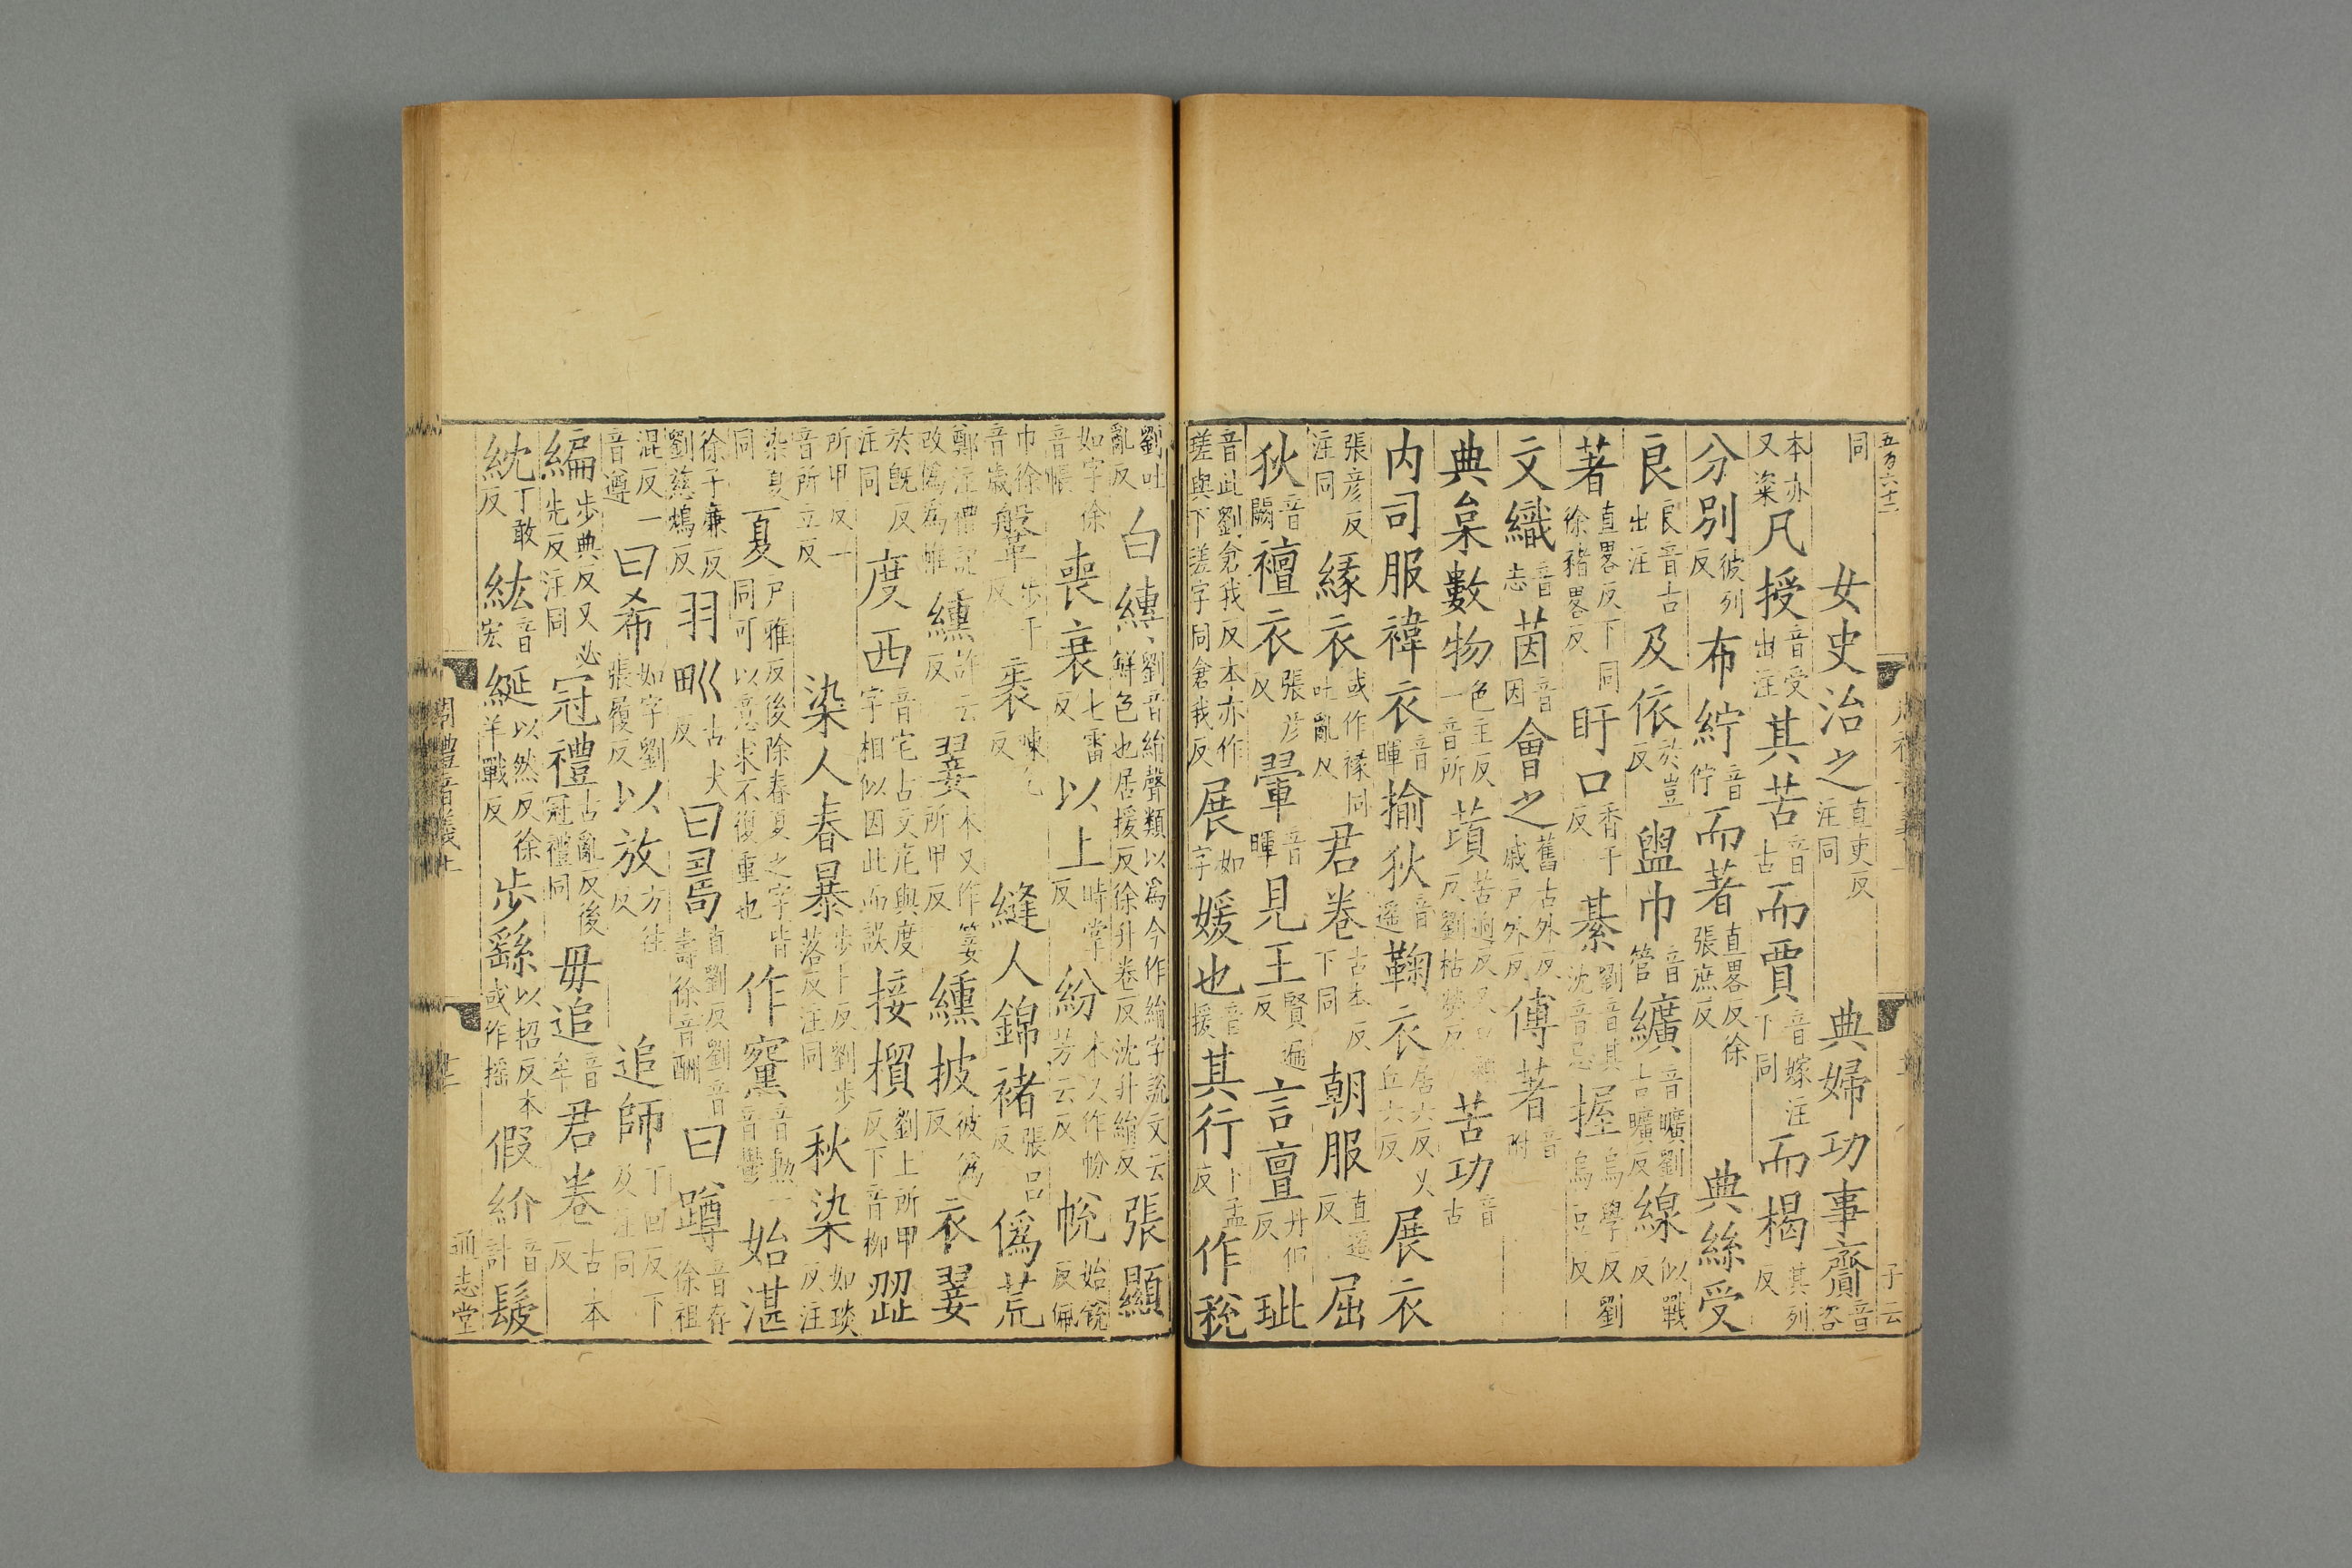 五百六十二
同　女史治之直吏反注同　典婦功事齎音咨
本亦又粢凡授音受出注其苦音古而賈音嫁注下同而楬其列反
分別彼列反布紵音佇而著直畧反徐張庶反　典絲受
良良音古出注及依於豈反盥巾音管纊音曠劉古曠反線似戰反
著直畧反下同徐豬畧反盱口香于反綦劉音其沈音忌握烏學反劉烏豆反
文織音志茵音因會之舊古外反戚戶外反傅著音附
典枲數物色主反一音所蕡苦功音古
内司服褘衣音暉揄狄音遥鞠衣居六反又丘六反展衣
張彦反注同緣衣或作褖同吐亂反君卷古本反下同朝服直遥反屈
狄音闕襢衣張彦反翬音暉見王賢遍反言亶丹但反玼
音此劉倉我反本亦作瑳與下瑳字同倉我反展如字媛也音援其行下孟反作税
劉吐亂反白縳劉音絹聲類以為今作絹字說文云鮮色也居援反徐升卷反沈升絹反張顯
如字徐音帳喪衰七雷反以上時掌反紛本又作帉芳云反帨始銳反佩
巾徐音歲鞶步干反袠陳乙反　縫人錦褚張呂反偽荒
鄭注禮記改偽為帷纁許云反翣本又作䈉所甲反纁披彼為反衣翣
於既反注同度西音宅古文㡯與度字相似因此而誤接檟劉上所甲反下音柳歰
所甲反一音所立反　染人春暴步卜反劉步落反注同秋染如琰反注
染夏同夏戶雅反後除春夏之字皆同可以意求不復重也作䵫音勲一音鬱始湛
徐子廉反劉慈鴆反羽畎古犬反曰𠷎直劉反劉音壽徐音酬曰蹲音存徐祖
混反一音遵曰希如字劉張履反以放方往反　追師丁回反下及注同
編步典反又必先反注同冠禮古亂反後冠禮同毋追音牟君卷古本反
紞丁敢反紘音宏綖以然反徐羊戰反步繇以招反本或作摇假紒音計髲
周禮音義上
通志堂